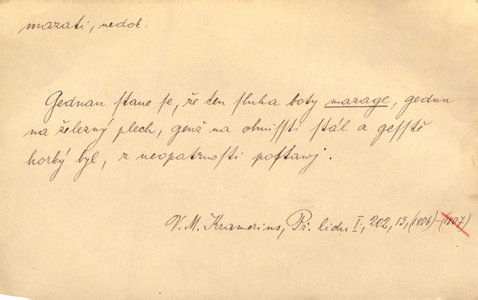 mazati, nedok.
Gednau stane se, že ten sluha boty mazage, gednu
na železný plech, genž na ohnissti stál a gesstě
horký byl, z neopatrnosti postawj.
V. M. Kramerius, Př. lidu I, 202, 13, (1806)-(1807)